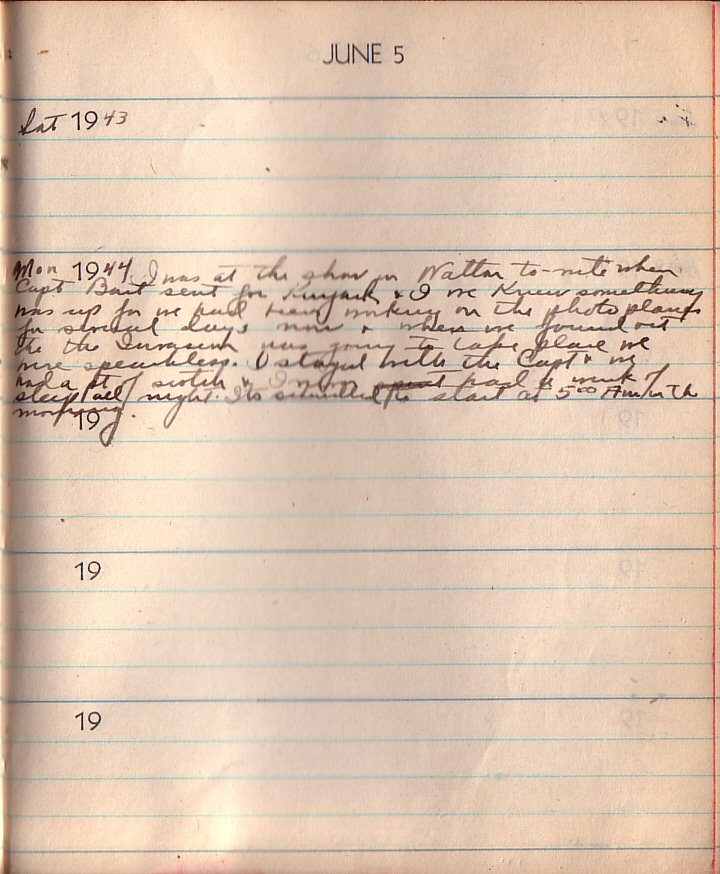 JUNE 5
Sat 1943
Mon 1944 I was at the show in Watton to-nite when
Capt sent for & I we knew something
was up for we had been working on the photo plans
for several days now & when we found out
the the Invasion was going to take place we
were speachless. I stayed with the Capt & we
had a pt of scotch & had a wink of
sleep all night. Its to start at 5:00 Am in the
morning.
19
19
19